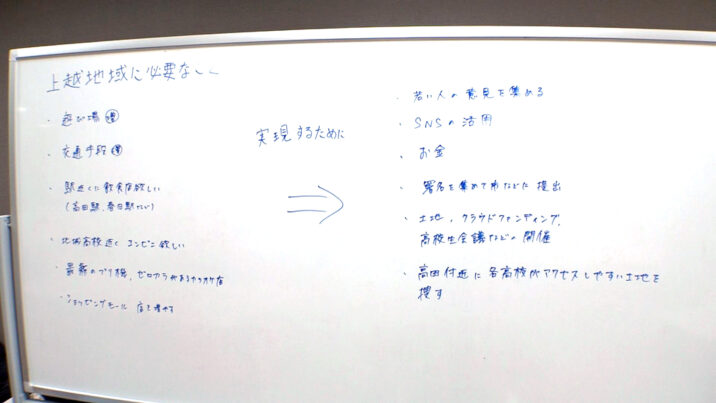 上越地域に必要なこと
・遊び場
・交通手段
・駅近くに飲食店欲しい
(高田駅、春日駅など)
・地域高校近くコンビニ欲しい
・最新のプリ機、ゼロカラがあるカラオケ店
・ショッピングモール 店を増やす
実現するために
・若い人の意見を集める
・SNSの活用
・お金
・署名を集めて市などに提出
・土地、クラウドファンディング、
高校生会議などの開催
・高田付近に各高校がアクセスしやすい土地を
捜す